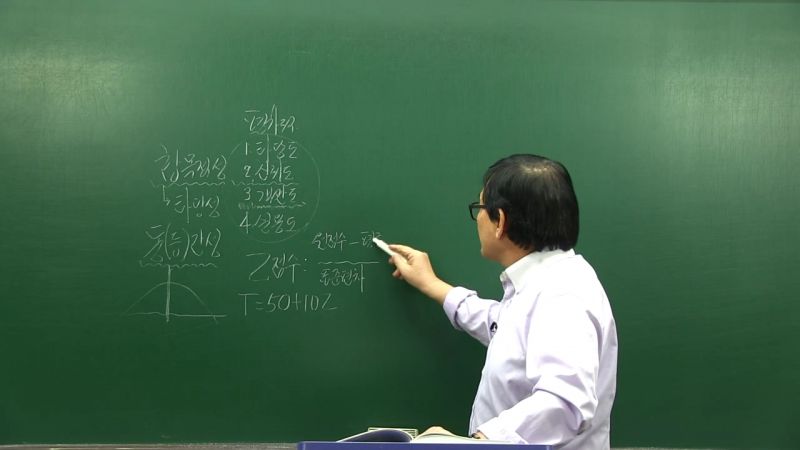 합목적성
타당성
동(등)간성
평가도구
1. 타당도
2. 신뢰도
3. 객관도
4. 실용도
Z점수 : 원점수 –
표준편차
T=50+10Z